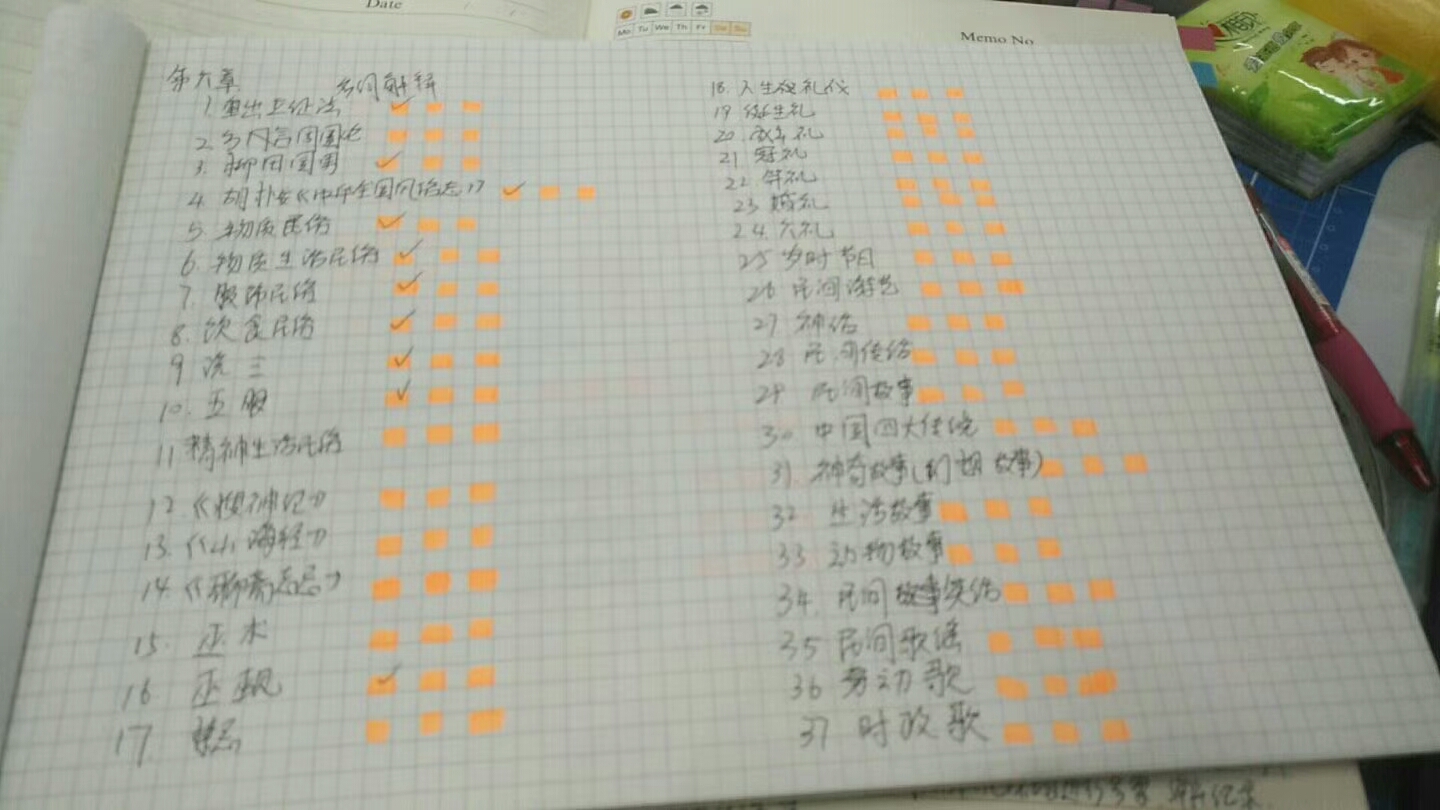 Date
Mo Tu We Th Fr Sa Su
Memo No.
第六章 名词解释
1. 重出立证法
2.
3. 柳田国男
4. 胡朴安《中华全国风俗志》
5. 物质民俗
6. 物质生活民俗
7. 服饰民俗
8. 饮食民俗
9 洗三
10. 五服
11 精神生活民俗
12 《搜神记》
13. 《山海经》
14 《聊斋志异》
15. 巫术
16 巫觋
17 禁忌
18. 人生仪礼
19 诞生礼
20 成年礼
21 冠礼
22 笄礼
23 婚礼
24. 六礼
25 岁时节日
26 民间游艺
27 神话
28 民间传说
29 民间故事
30 中国四大传说
31. 神奇故事(幻想故事)
32 生活故事
33 动物故事
34. 民间笑话
35 民间歌谣
36 劳动歌
37 时政歌